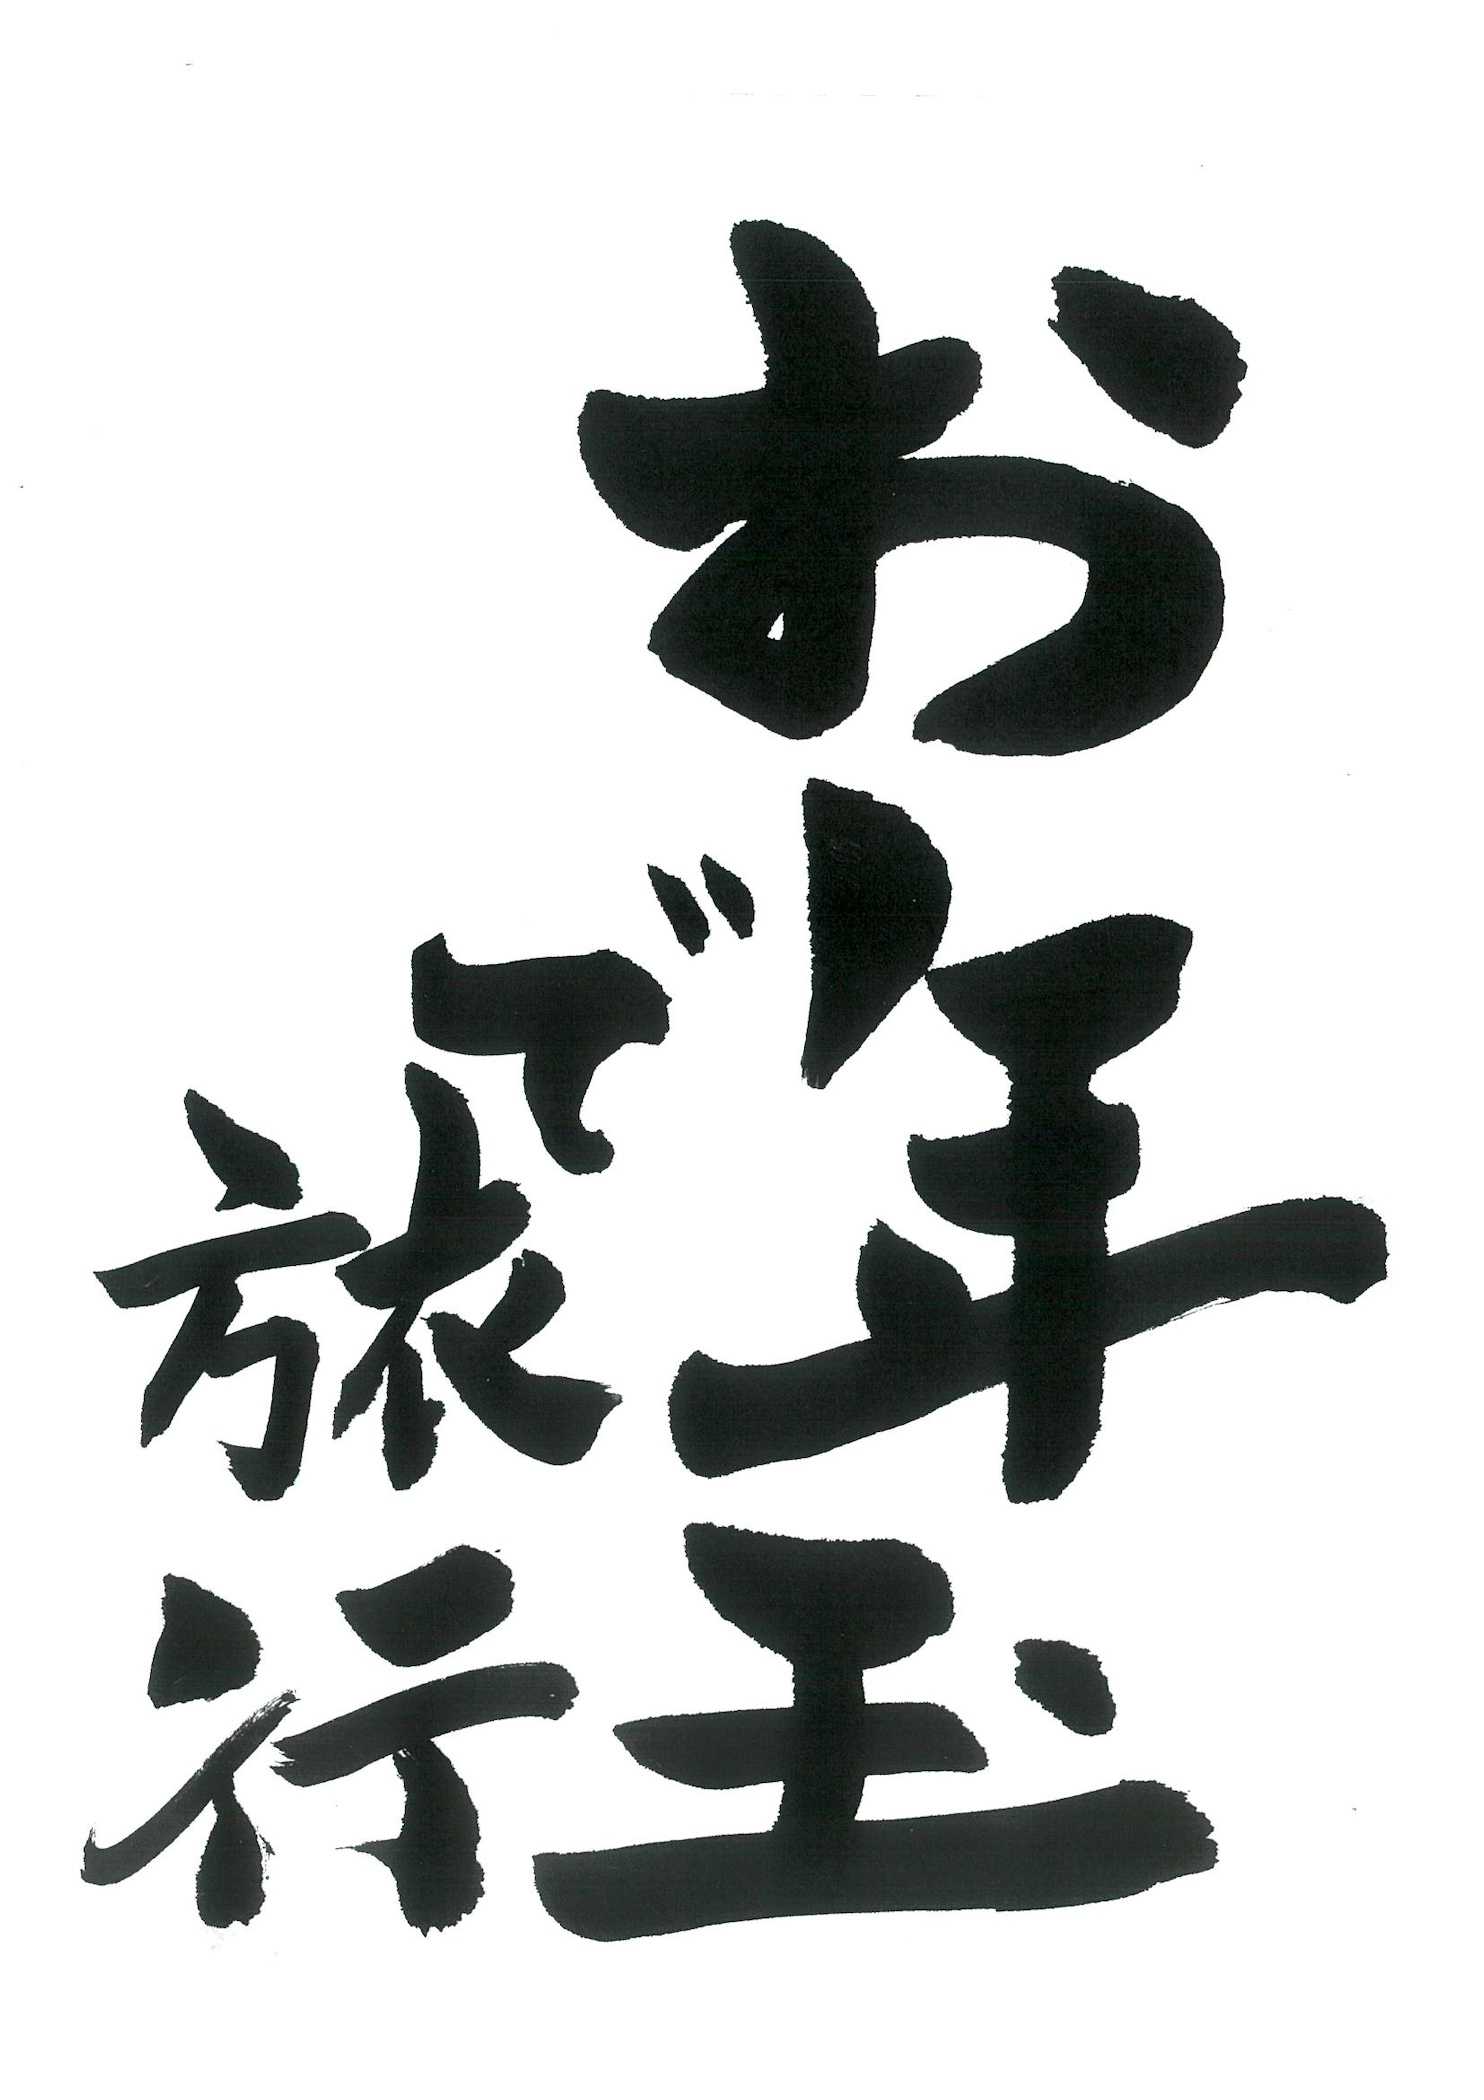 お年玉
で旅行